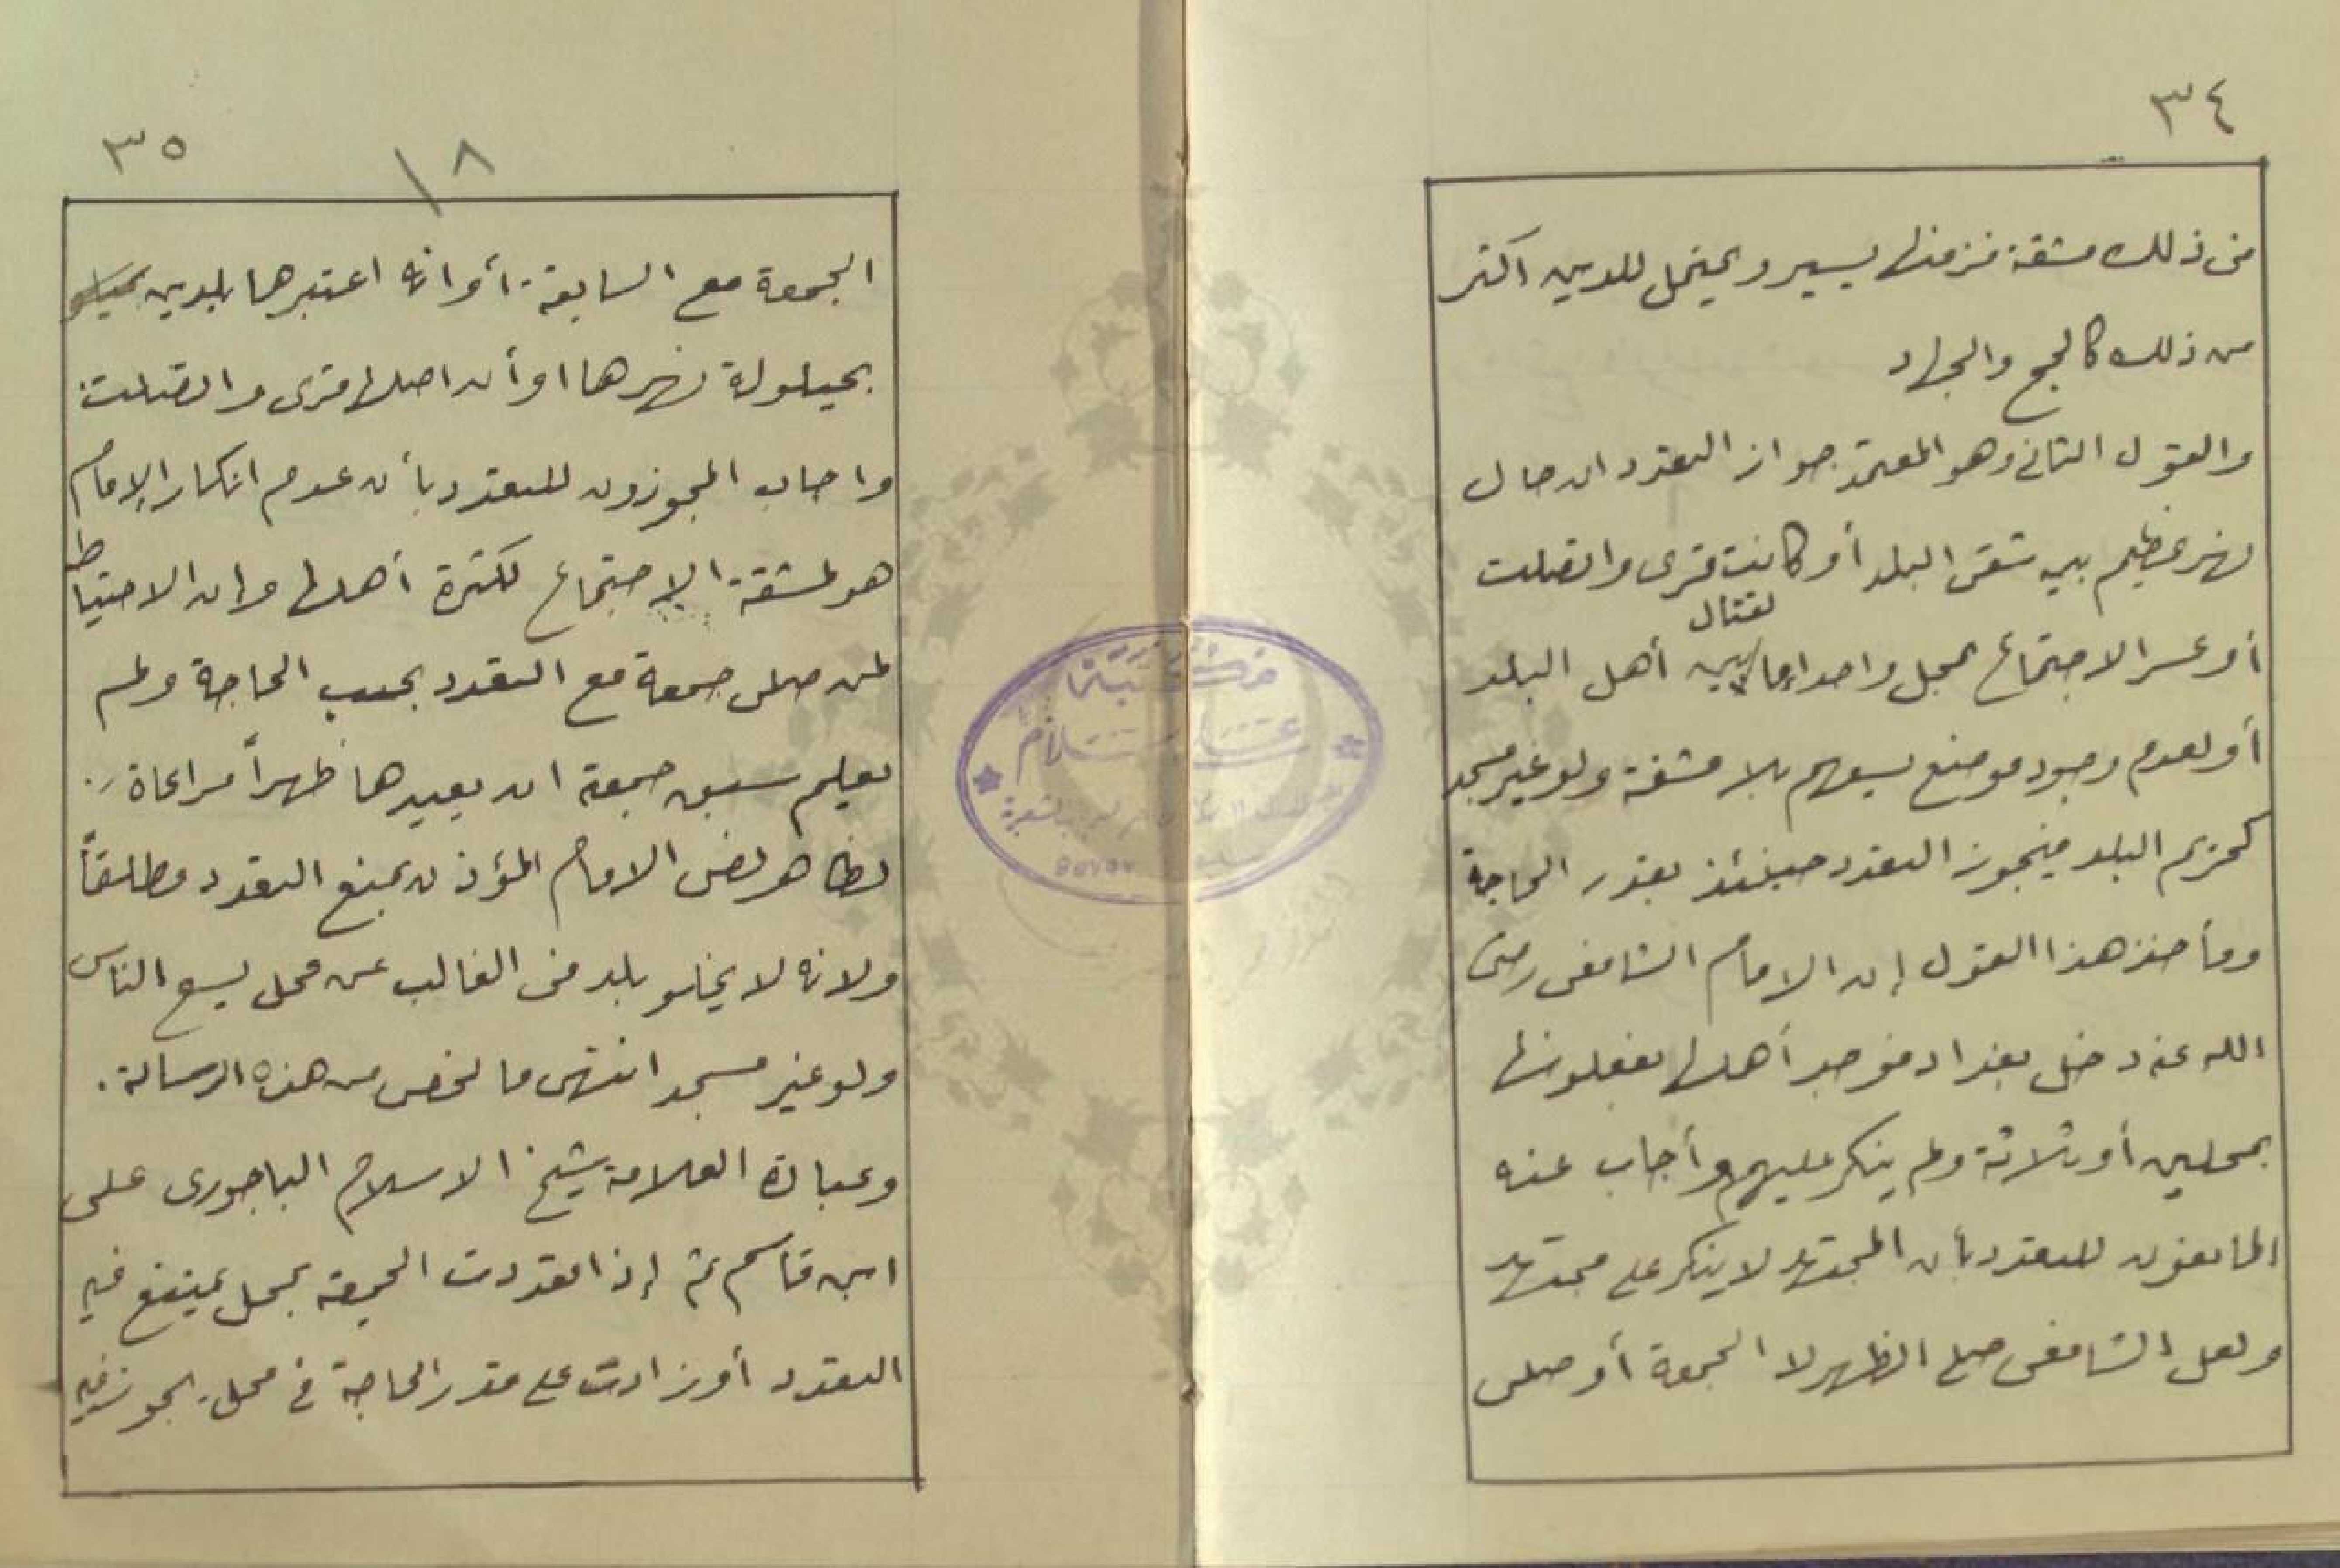 ٣٤
فى ذلك مشقة فزمنها يسير ويحتمل للدين اكثر
من ذلك كالحج والجهاد
والقول الثانى وهو المعتمد جواز التعدد ان حال
نهر عظيم بين شقى البلد أو كانت قرى واتصلت
أو عسر الاجتماع بمحل واحد إما لقتال بين أهل البلد
أو لعدم وجود موضع يسعهم بلا مشقة ولو غير مسجد
كحريم البلد فيجوز التعدد حينئذ بقدر الحاجة
ومأخذ هذا القول إن الامام الشافعى رضى
الله عنه دخل بغداد فوجد أهلها يفعلونها
بمحلين أو ثلاثة ولم ينكر عليهم وأجاب عنه
المانعون للتعدد بأن المجتهد لا ينكر على مجتهد
ولعل الشافعى صلى الظهر لا الجمعة أو صلى
٣٥
١٨
الجمعة مع السابقة أو انه اعتبرها بلدين
بحيلولة نهرها او أن اصلها قرى واتصلت
واجاب المجوزون للتعدد بأن عدم انكار الإمام
هو لمشقة الإجتماع لكثرة أهلها وان الاحتياط
لمن صلى جمعة مع التعدد بحسب الحاجة ولم
يعلم سبق جمعة ان يعيدها ظهراً مراعاة
لظاهر نص الامام المؤذن بمنع التعدد مطلقاً
ولانه لا يخلو بلد فى الغالب عن محل يسع الناس
ولو غير مسجد انتهى ما لخص من هذه الرسالة.
وعبارة العلامة شيخ الاسلام الباجورى على
ابن قاسم ثم إذا تعددت الجمعة بمحل يمتنع فيه
التعدد أو زادت على قدر الحاجة فى محل يجوز فيه